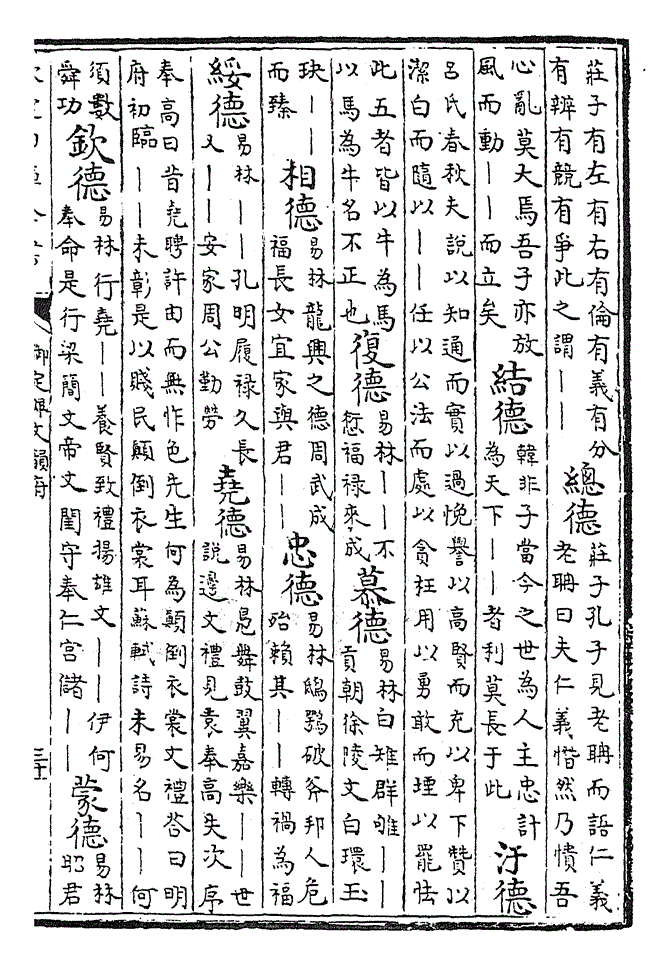 莊子有左有右有倫有義有分
有辨有競有爭此之謂——
總德
莊子孔子見老聃而語仁義
老聃曰夫仁義憯然乃憤吾
心亂莫大焉吾子亦放
風而動——而立矣
結德
韓非子當今之世為人主忠計
為天下——者利莫長于此
汙德
呂氏春秋夫說以知通而實以過悗譽以高賢而充以卑下贊以
潔白而隨以——任以公法而處以貪枉用以勇敢而堙以罷怯
此五者皆以牛為馬
以馬為牛名不正也
復德
易林——不
愆福祿來成
慕德
易林白雉群雊——
貢朝徐陵文白環玉
玦——
而臻
相德
易林龍興之德周武成
福長女宜家與君——
忠德
易林鴟鴞破斧邦人危
殆賴其——轉禍為福
綏德
易林——孔明履祿久長
又——安家周公勤勞
堯德
易林鳧舞鼓翼嘉樂——世
說邊文禮見袁奉高失次序
奉高曰昔堯聘許由而無怍色先生何為顛倒衣裳文禮答曰明
府初臨——未彰是以賤民顛倒衣裳耳蘇軾詩未易名——何
須數
舜功
欽德
易林行堯——養賢致禮揚雄文——伊何
奉命是行梁簡文帝文閨守奉仁宮儲——
蒙德
易林
昭君
御定佩文韻府